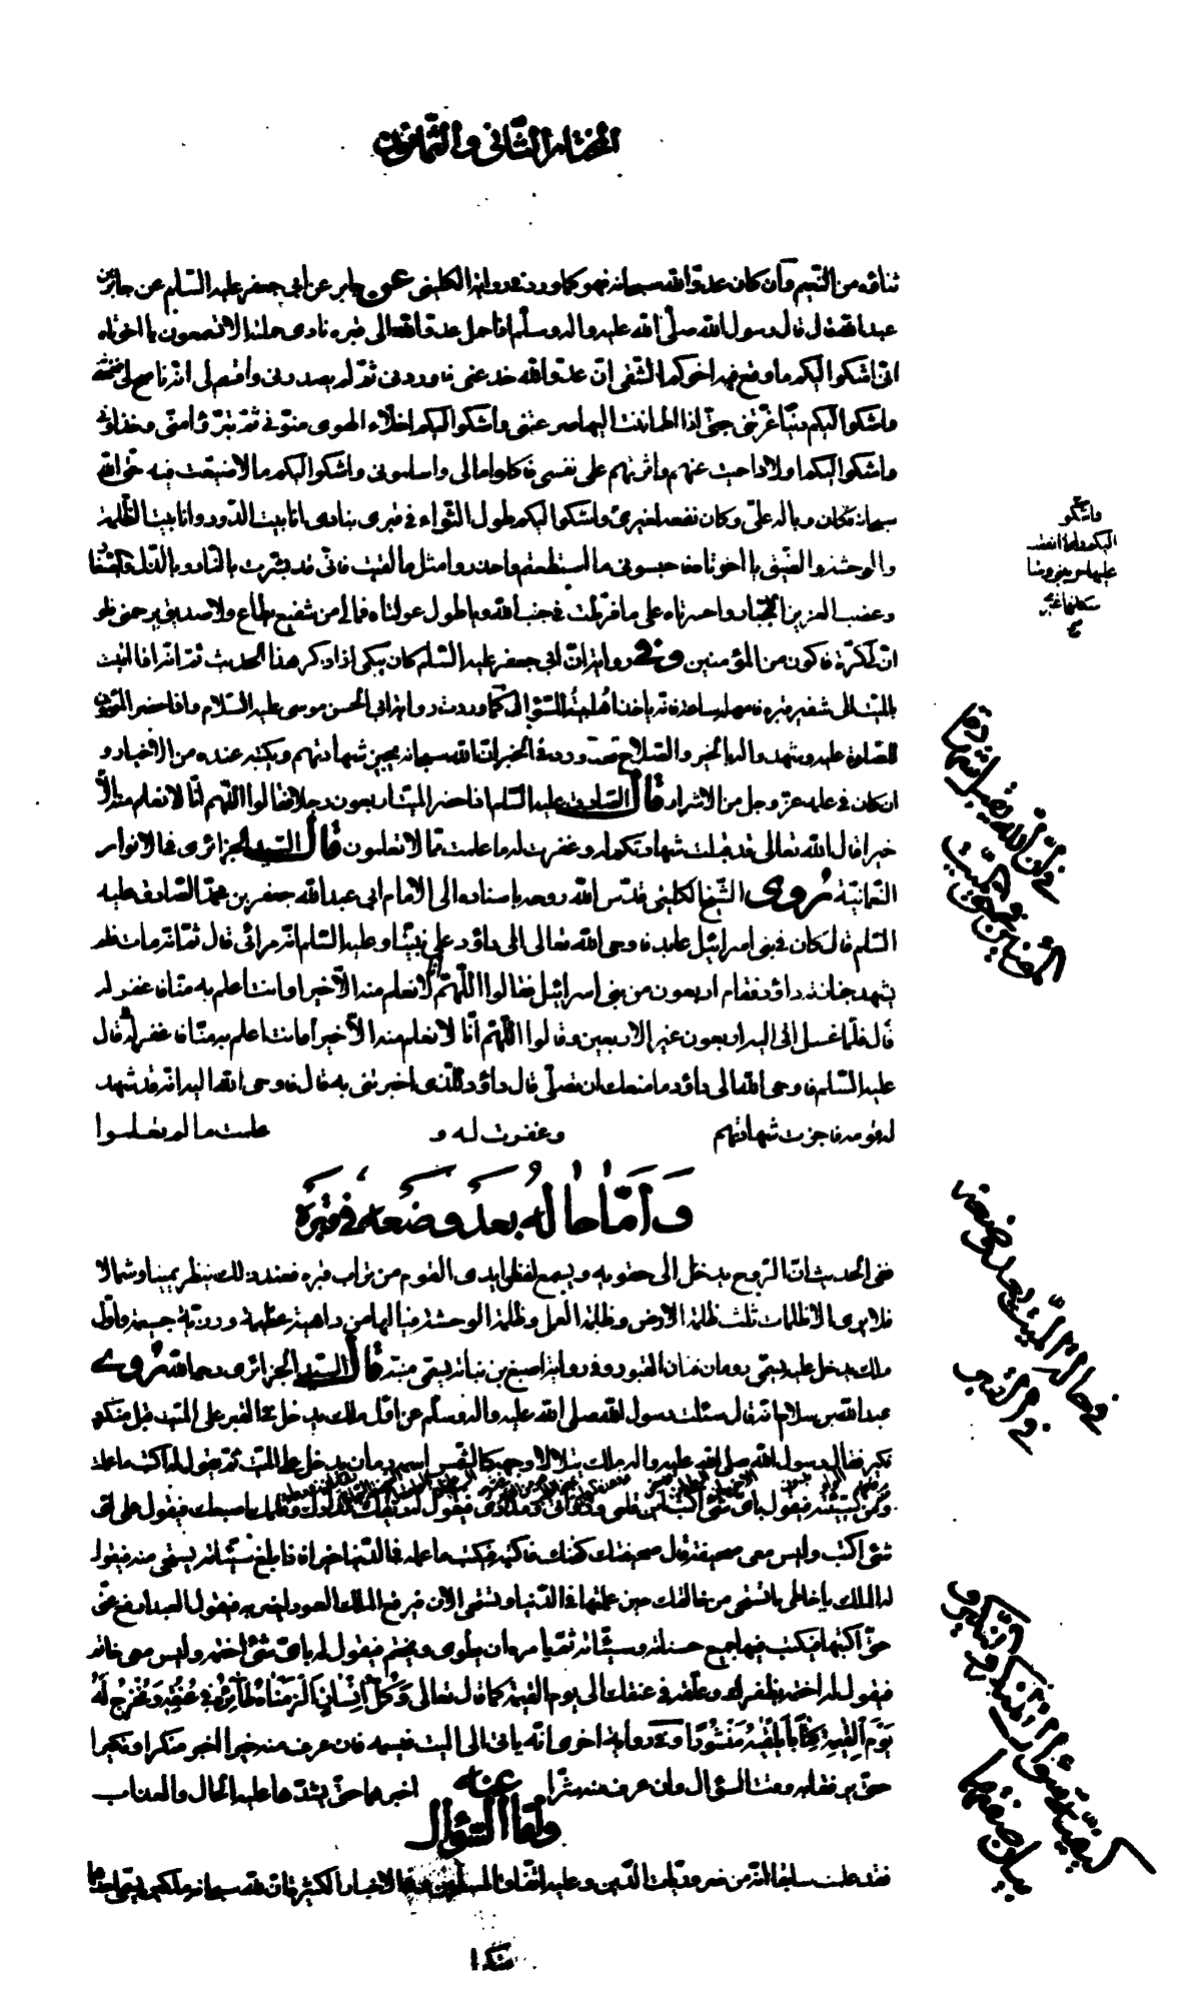 المختار الثاني والثمانون
ثناؤه من النعيم وأن كان عدوّ الله سبحانه فهو كما ورد في رواية الكليني عن جابر عن أبي جعفر عليه السّلام عن جابر بن
عبد الله قال قال رسول الله صلّى الله عليه واله وسلّم اذا حمل عدوّ الله الى قبره نادى حملته الا تسمعون يا اخوتاه
انّى اشكوا اليكم ما وقع فيه اخوكم الشّقى انّ عدوّ الله خدعنى فاوردنى ثمّ لم يصدرنى واقسم لى انّه ناصح لى فغشّنى
واشكوا اليكم دنيا غرّتنى حتّى اذا اطماننت اليها صرعتنى واشكوا اليكم اخلّاء الهوى منّونى ثمّ تبرّؤا منّى وخذلونى
واشكوا اليكم اولادا حميت عنهم واثرتهم على نفسى فاكلوا مالى واسلمونى واشكوا اليكم مالا ضيّعت فيه حقّ الله
سبحانه فكان وباله علىّ وكان نفعه لغيرى واشكوا اليكم طول الثّواء فى قبرى ينادى انا بيت الدّود وانا بيت الظّلمة
والوحشة والضّيق يا اخوتاه فاحبسونى ما استطعتم واحذروا مثل ما لقيت فانّى قد بشّرت بالنّار وبالذّلّ والصّغار
وغضب العزيز الجبّار واحسرتاه على ما فرّطت فى جنب الله ويا طول عولتاه فمالى من شفيع يطاع ولا صديق يرحمنى فلو
انّ لى كرّة فاكون من المؤمنين وفى رواية انّ ابى جعفر عليه السّلم كان يبكى اذا ذكر هذا الحديث ثمّ انّه اذا اتيت
بالميّت الى شفير قبره فامهله ساعة فانّه ياخذ اهبته للسّؤال كما وردت رواية ابى الحسن موسى عليه السّلام واذا حضر المؤمنون
للصلوة عليه وشهد واله بالخير والصّلاح فقد ورد فى الخبر انّ الله سبحانه يجيز شهادتهم ويكتبه عنده من الاخيار و
ان كان فى علمه عزّ وجلّ من الاشرار قال الصّادق عليه السّلم اذا حضر الميّت اربعون رجلا فقالوا اللّهم انّا لا نعلم منه الّا
خيرا قال الله تعالى قد قبلت شهادتكم له وغفرت له ما علمت ممّا لا تعلمون قال السّيّد الجزائرى فى الانوار
النّعمانيّة روى الشّيخ الكلينى قدّس الله روحه باسناده الى الامام ابى عبد الله جعفر بن محمّد الصّادق عليه
السّلم قال كان فى بنى اسرائيل عابد فاوحى الله تعالى الى داود على نبيّنا وعليه السّلم انّه مرائى قال ثمّ انّه مات فلم
يشهد جنازته داود فقام اربعون من بنى اسرائيل فقالوا اللّهمّ انّا لا نعلم منه الّا خيرا وانت اعلم به منّا فاغفر له
قال فلمّا غسل اتى اليه اربعون غير الاربعين وقالوا اللّهمّ انّا لا نعلم منه الّا خيرا وانت اعلم به منّا فاغفر له قال
عليه السّلم فاوحى الله الى داود ما منعك ان تصلّى قال داود للّذى اخبرتنى به قال فاوحى الله اليه انّه قد شهد
له قوم فاجزت شهادتهم وغفرت له و علمت ما لم يعلموا
وامّا حاله بعد وضعه فى قبره
ففى الحديث انّ الرّوح يدخل الى حقويه ويسمع لفظ ايدى القوم من تراب قبره فعند ذلك ينظر يمينا وشمالا
فلا يرى الا ظلمات ثلث ظلمة الارض وظلمة العمل وظلمة الوحشة فيا لها من داهية عظيمة ورزيّة جسيمة فاوّل
ملك يدخل عليه يسمّى رومان فتان القبور وفى رواية اصبغ بن نباته يسمّى منبه قال السّيّد الجزائرى رحمه الله روى
عبد الله بن سلام انّه قال سئلت رسول الله صلى الله عليه واله وسلّم عن اوّل ملك يدخل فى القبر على الميّت قبل منكر و
نكير فقال رسول الله صلى الله عليه واله ملك يتلالأ وجهه كالشّمس اسمه رومان يدخل على الميّت ثمّ يقول له اكتب ما عملت
من حسنة وسيّئة فيقول باىّ شئ اكتب اين قلمى ودواتى ومدادى فيقول له ريقك مدادك وقلمك اصبعك فيقول على اىّ
شئ اكتب وليس معى صحيفة قال صحيفتك كفنك فاكتبه فيكتب ما عمله فى الدّنيا خيرا فاذا بلغ سيّئاته يستحى منه فيقول
له الملك يا خاطى ما تستحى من خالقك حين عملتها فى الدّنيا وتستحى الان فيرفع الملك العمود ليضربه فيقول العبد ارفع عنّى
حتّى اكتبها فيكتب فيها جميع حسناته وسيّئاته ثمّ يامره ان يطوى ويختم فيقول له باىّ شئ اختمه وليس معى خاتم
فيقول له اختمه بظفرك وعلّقه فى عنقك الى يوم القيمة كما قال تعالى وَكُلَّ اِنْسٰانٍ اَلْزَمْنٰاهُ طٰآئِرَهُ فى عُنُقِهِ وَنُخْرِجُ لَهُ
يَوْمَ الْقِيٰمَةِ كِتٰاباً يَلْقٰيهُ مَنْشُوراً وفى رواية اخرى انّه ياتى الى الميت فيشمه فان عرف منه خيرا اخبر منكرا ونكيرا
حتّى يرفقا به وقت السؤال وان عرف منه شرّا اخبرهما حتّى يشدّدا عليه الحال والعذاب
وامّا السّؤال عنه
فقد علمت سابقا انّه من ضروريّات الدّين وعليه اتّفاق المسلمين وفى الاخبار الكثيرة انّ لله سبحانه ملكين يسمّى احدهما
منكرا
واشكو
اليكم دارا انفقت
عليها حريبتى وصا
سكانها غيرى
فى انّ الله يقبل شهادة
المؤمنين فى حقّ الميّت
فى حال الميّت بعد وضعه
فى القبر
كيفيّة سؤال المنكر والنّكير و
بيان صفتهما